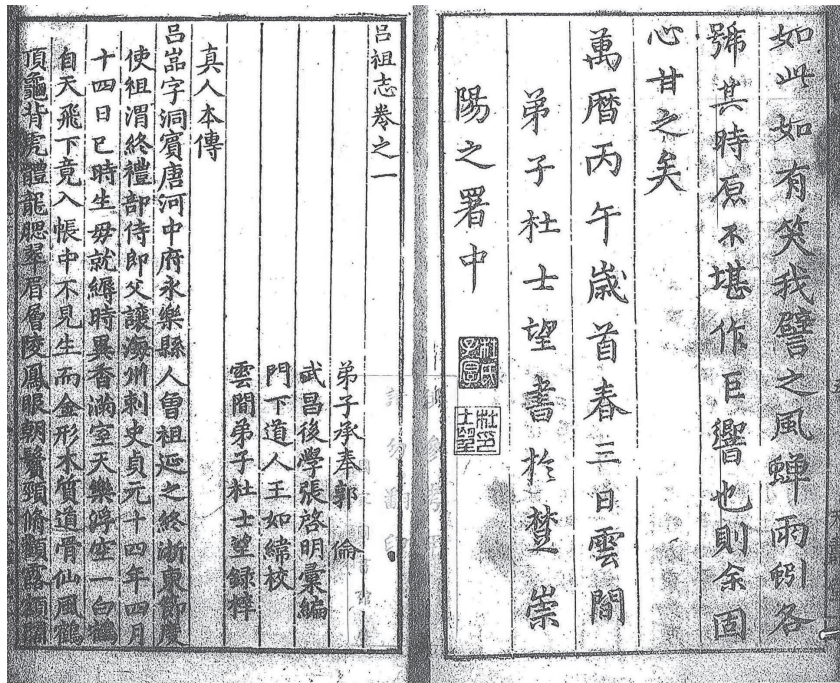 如此如有笑我譬之風蟬雨蚓各
號其時原不堪作巨響也則余固
心甘之矣
萬曆丙午歲首春三日雲間
弟子杜士望書於楚崇
陽之署中
杜氏
杜印
士望
呂祖志卷之一
弟子承奉郭倫
武昌後學張啓明彙編
門下道人王如緯校
雲間弟子杜士望録梓
真人本傳
呂嵓字洞賓唐河中府永樂縣人曾祖延之終浙東節度
使祖渭終禮部侍郎父讓海州刺史貞元十四年四月
十四日巳時生母就縟時異香滿室天樂浮空一白鶴
自天飛下竟入帳中不見生而金形木質道骨仙風鶴
頂龜背虎體龍腮翠眉層稜鳳眼朝鬢頸脩顴露額闊